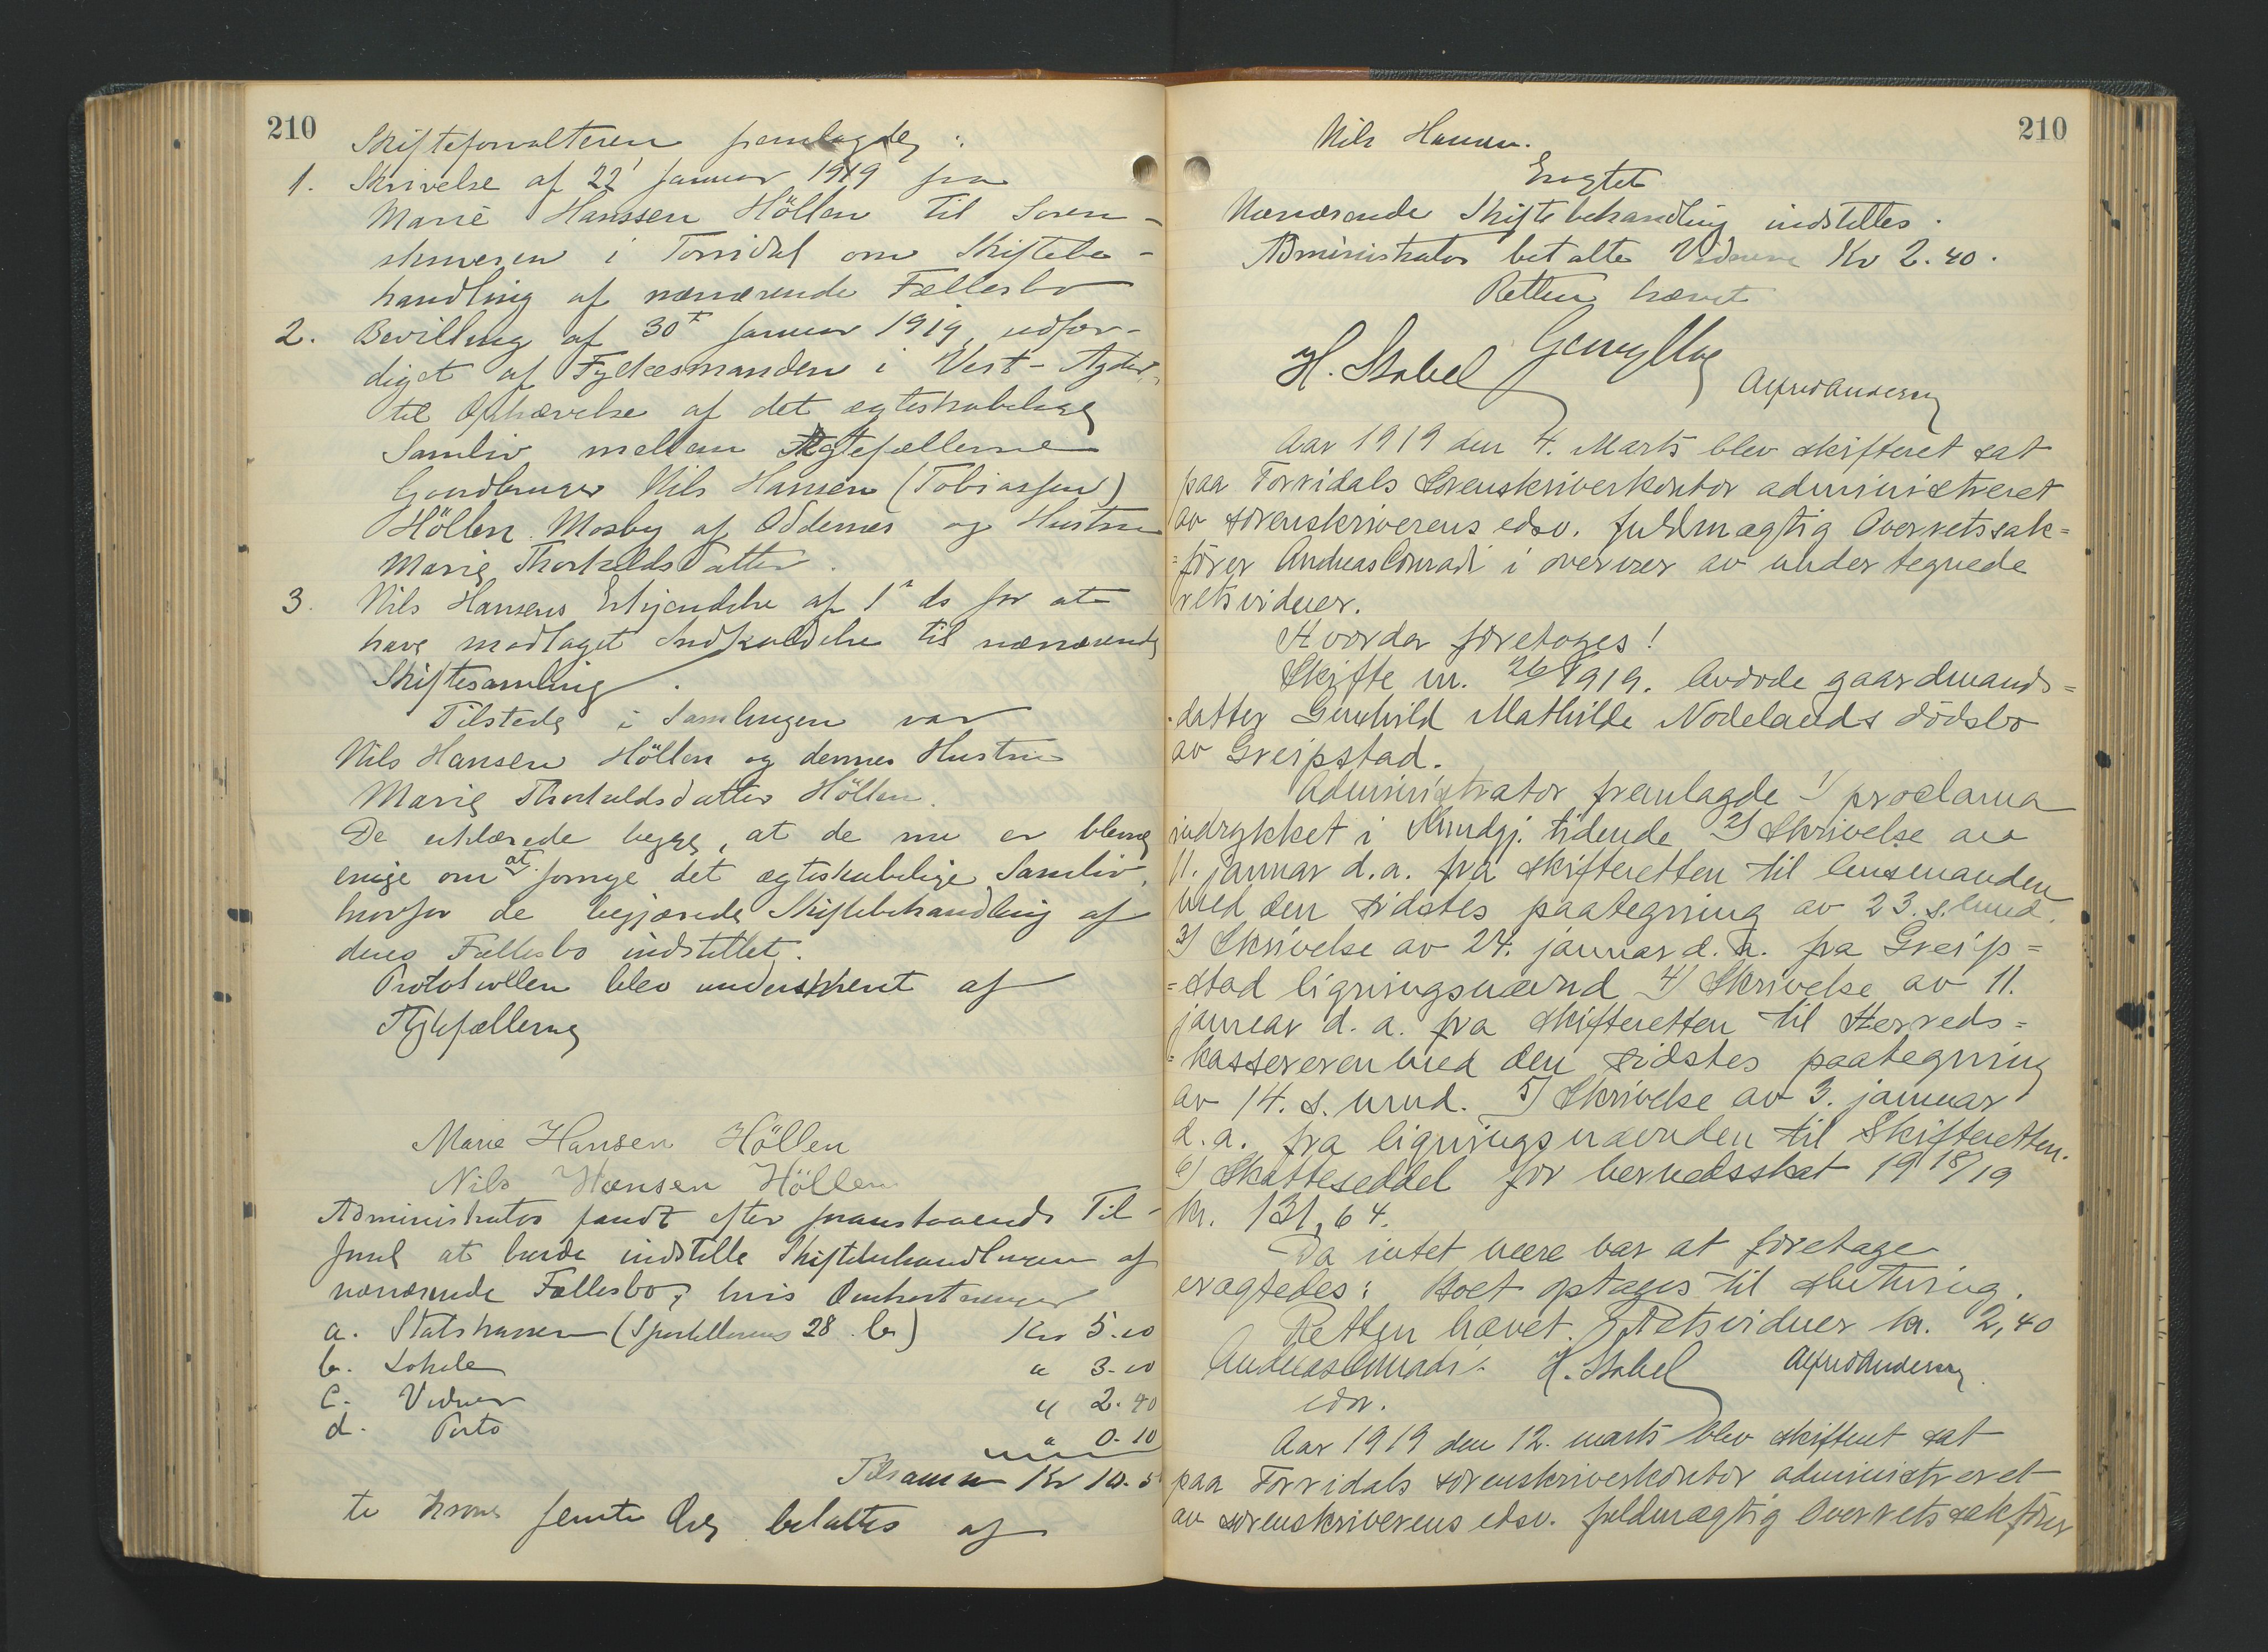 210
Skifteforvalteren fremlagde:
1. Skrivelse af 22' Januar 1919 fra
Marie Hanssen Höllen til Soren-
skriveren i Torridal om Skiftebe-
handling af nærværende Fællesbo
2. Bevilling af 30' Januar 1919, udfær-
diget af Fylkesmanden i Vest-Agder,
til Ophævelse af det ægteskabelige
Samliv mellem Ægtefællerne
Gaardbruger Nils Hansen (Tobiassen)
Höllen Mosby af Oddernes og Hustru
Marie Thorkildsdatter.
3. Nils Hansens Erkjendelse af 1' ds for at
have modtaget Indkaldelse til nærværende
Skiftesamling.
Tilstede i Samlingen var
Nils Hansen Höllen og dennes Hustru
Marie Thorkildsdatter Höllen.
De erklærede begge, at de nu er bleve
enige om at fornye det ægteskabelige Samliv,
hvorfor de begjærede Skiftebehandling af
deres Fællesbo indstillet.
Protokollen blev underskrevet af
Ægtefællerne
Marie Hansen Höllen
Nils Hansen Höllen
Administrator fandt efter foranstaaende Til-
førsel at burde indstille Skiftebehandlingen af
nærværende Fællesbo, hvis Omkostninger
a. Statskassen (Sportellovens 28 b) Kr 5.00
b. Lokale " 3.00
c. Vidner " 2.40
d. Porto " 0.10
Tilsammen Kr 10.5
ti Kroner femti Øre betaltes af
210
Nils Hansen.
Eragtet
Nærværende Skiftebehandling indstilles.
Administrator betalte Vidnerne Kr 2.40.
Retten hævet
H. Stabel Alfred Andersen
Aar 1919 den 4. Marts blev skifteret sat
paa Torridals Sorenskriverkontor administreret
av sorenskriverens edsv. fuldmægtig Overretssak=
=förer Andreas Conradi i overvær av undertegnede
retsvidner.
Hvorda foretoges!
Skifte nr. 26/1919. Avdøde gaardmands=
=datter Gunhild Mathilde Nodelands dödsbo
av Greipstad.
Administrator fremlagde 1) proclama
indrykket i Kundgj. tidende 2) Skrivelse av
11. januar d.a. fra skifteretten til lensmanden
med den sidstes paategning av 23. s. mnd.
3) Skrivelse av 24. januar d.a. fra Greip=
=stad ligningsnævnd 4) Skrivelse av 11.
januar d.a. fra skifteretten til Herreds=
=kassereren med den sidstes paategning
av 14. s. mnd. 5) Skrivelse av 3. januar
d.a. fra ligningsnævnden til Skifteretten.
6) Skatteseddel for herredsskat 1918/19
kr. 131,64.
Da intet mere var at foretage
eragtedes: Boet optages til slutning.
Retten hævet. Retsvidner kr. 2,40
Andreas Conradi. H. Stabel Alfred Andersen
edsv.
Aar 1919 den 12. marts blev skifteret sat
paa Torridals sorenskriverkontor administreret
av sorenskriverens edsv. fuldmægtig Overretssakförer